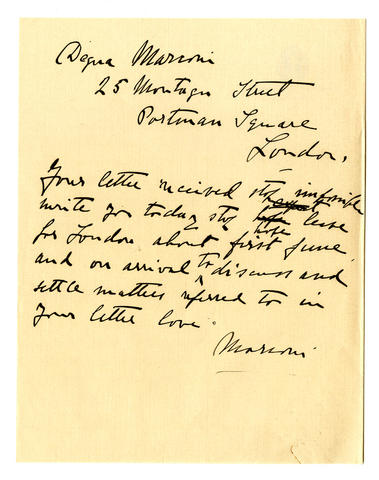 Degna Marconi
25 Montagu Street
Portman Square
London,
Your letter received stop impossible
write you today stop hope leave
for London about first June
and on arrival to discuss and
settle matters referred to in
your letter love.
Marconi